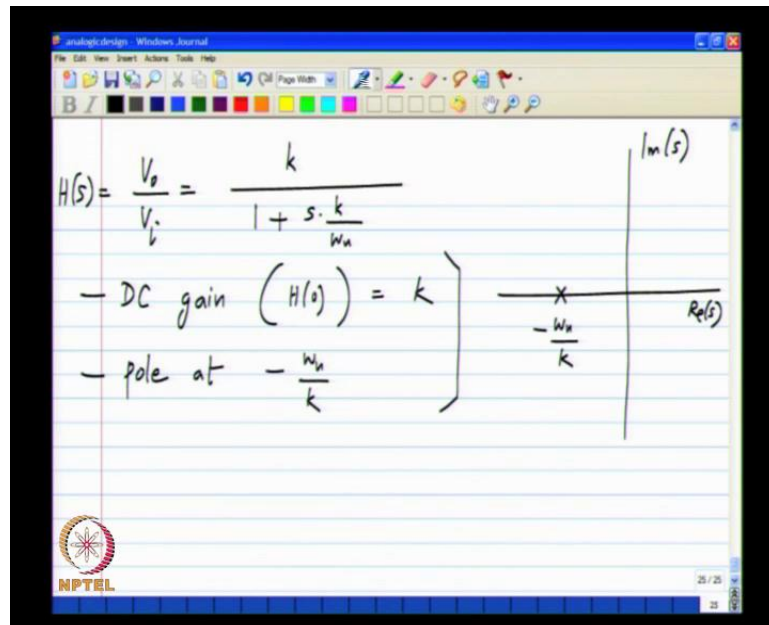 analogicdesign - Windows Journal
File Edit View Insert Actions Tools Help
Page Width
B I
H(s) = V₀/Vᵢ = k/(1 + s·k/ωᵤ)
Im(s)
— DC gain (H(0)) = k
Re(s)
-ωᵤ/k
— pole at -ωᵤ/k
NPTEL
25 / 25
25